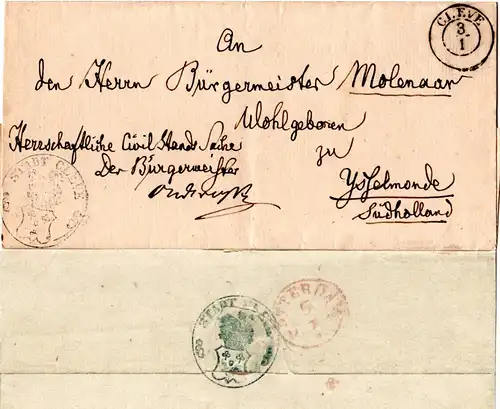 CLEVE
3/1
An
den Herrn Bürgermeister Molenaar
Wohlgeboren
zu
Ysselmonde
Südholland
Herrschaftliche Civil Stands Sache
Der Bürgermeister
STADT CLEVE
STADT CLEVE